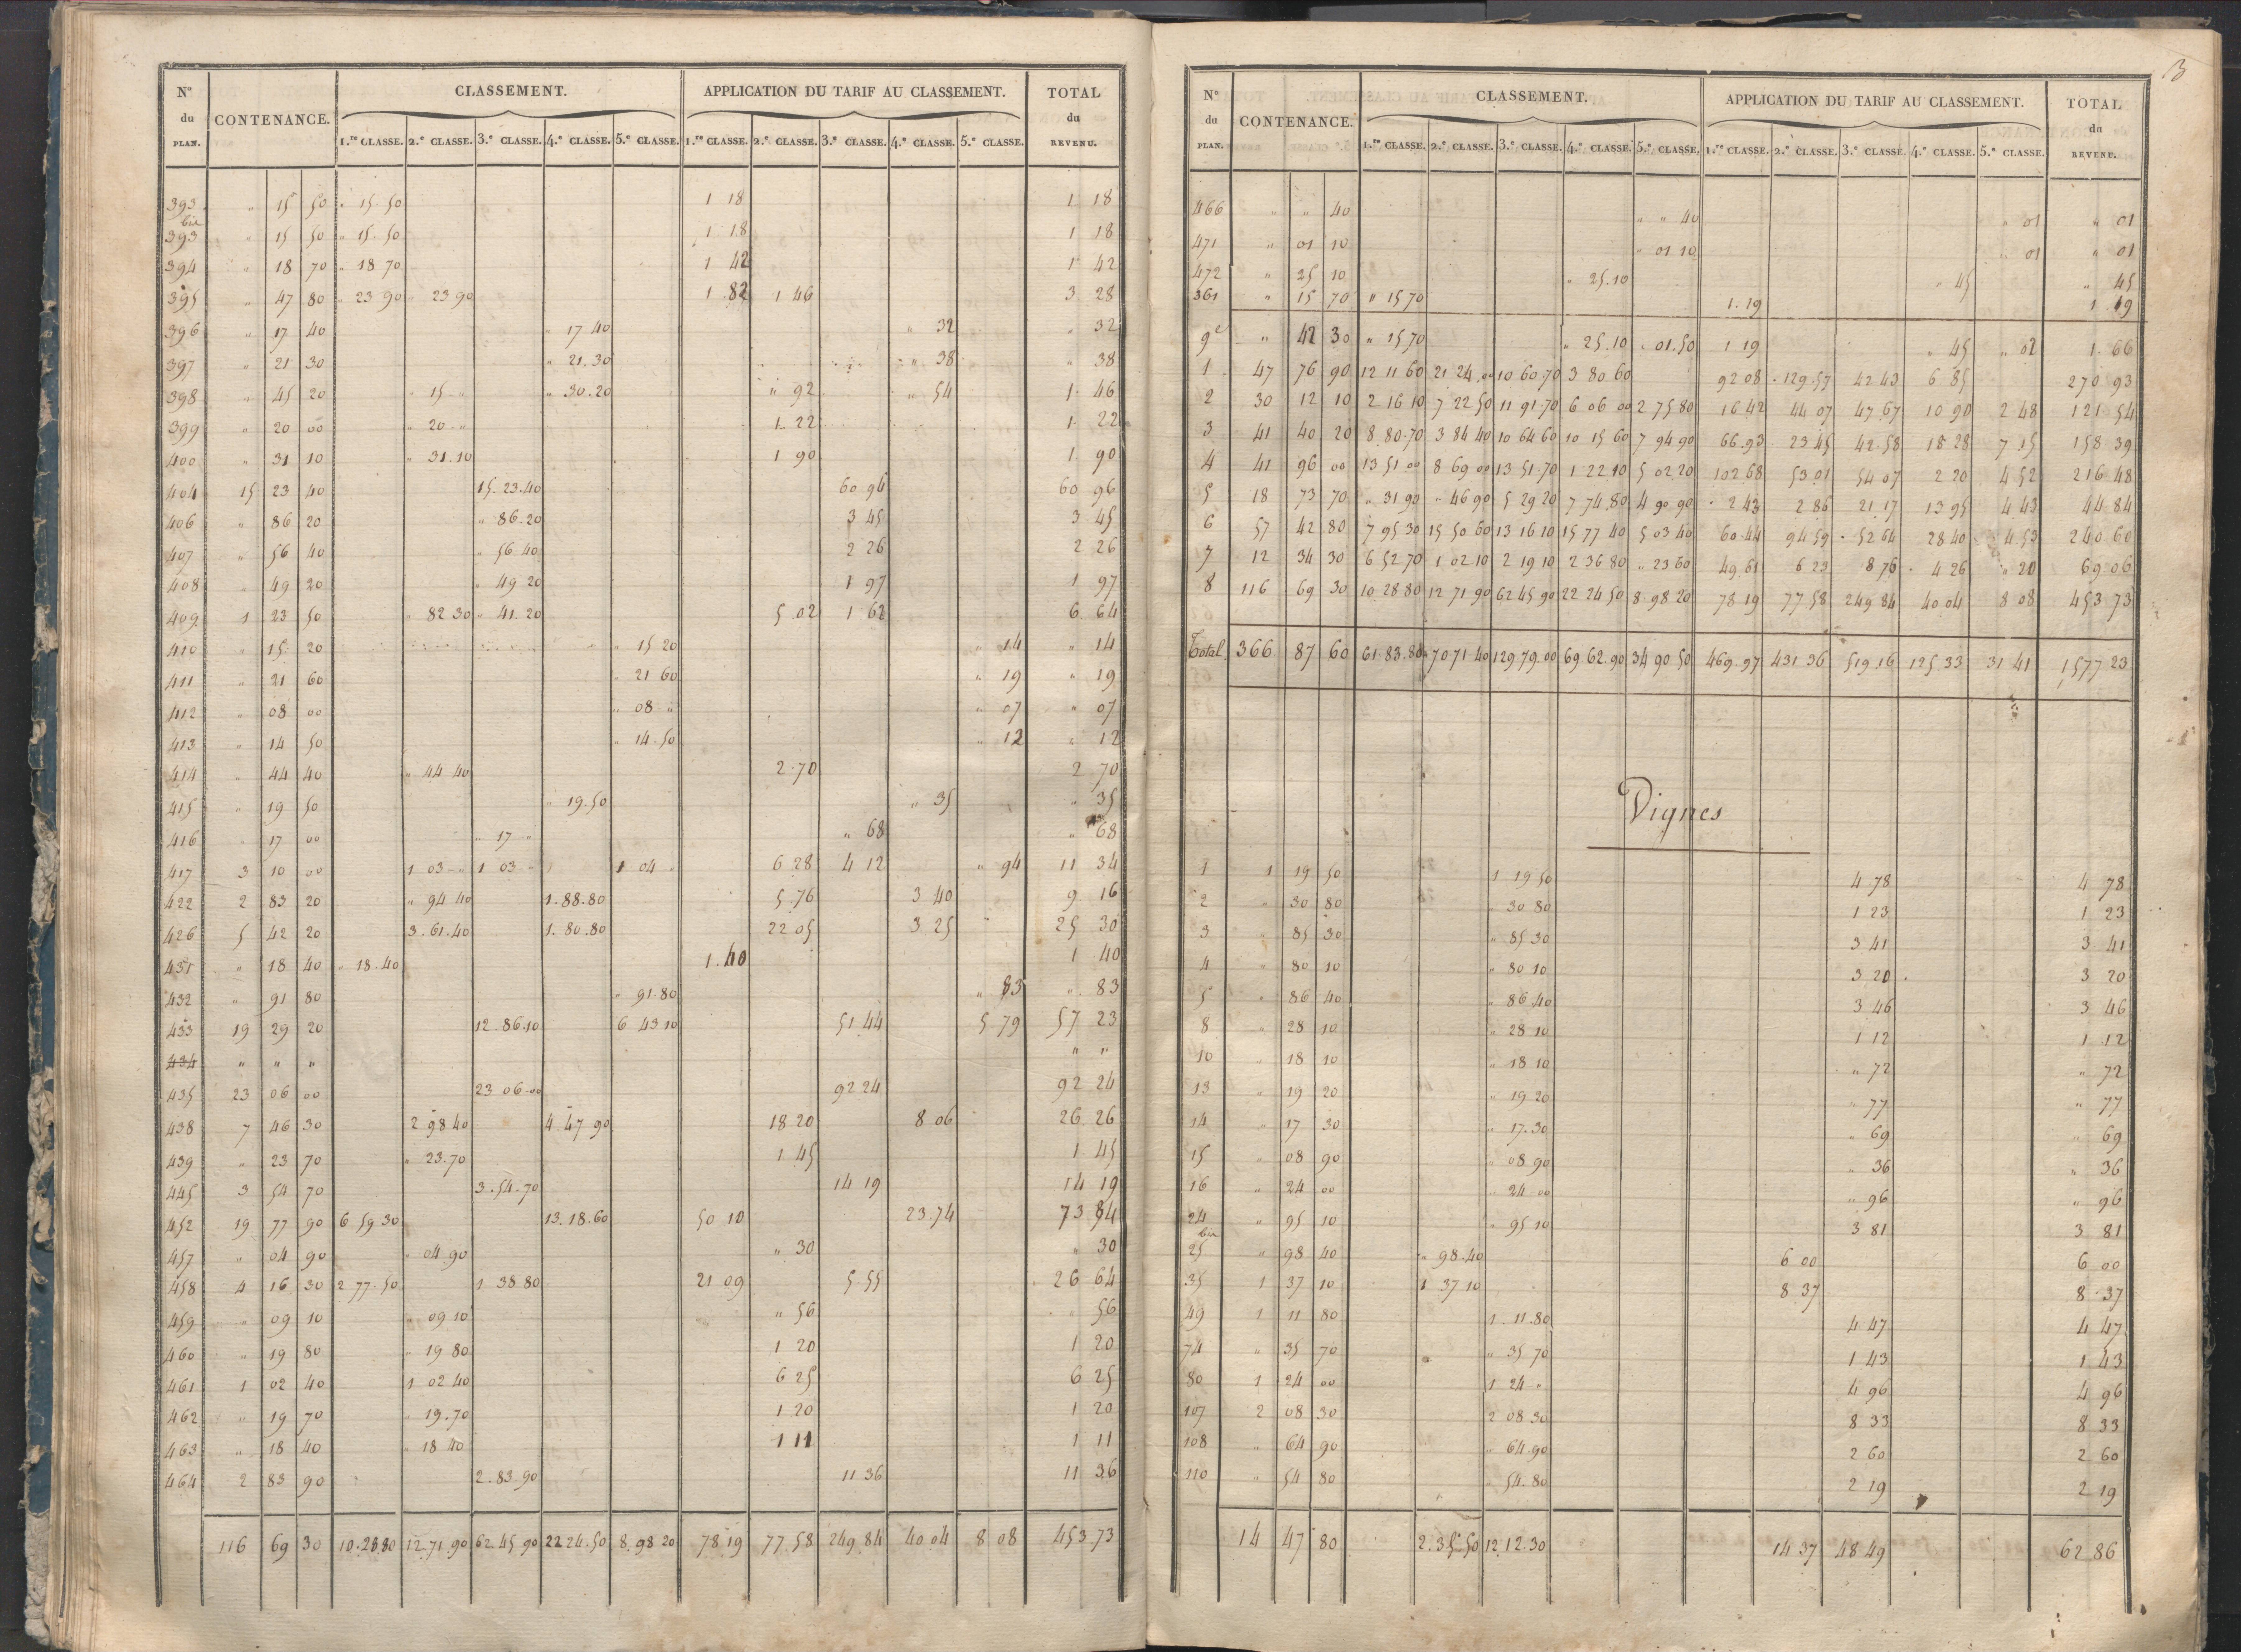 N° du PLAN. CONTENANCE. CLASSEMENT. APPLICATION DU TARIF AU CLASSEMENT. TOTAL du REVENU.
1.re CLASSE. 2.e CLASSE. 3.e CLASSE. 4.e CLASSE. 5.e CLASSE. 1.re CLASSE. 2.e CLASSE. 3.e CLASSE. 4.e CLASSE. 5.e CLASSE.
393 " 15 50 " 15 50 1 18 1 18
393 bis " 15 50 " 15 50 1 18 1 18
394 " 18 70 " 18 70 1 42 1 42
395 " 47 80 " 23 90 " 23 90 1 82 1 46 3 28
396 " 17 40 " 17 40 " 32 " 32
397 " 21 30 " 21.30 " 38 " 38
398 " 45 20 " 15 " " 30.20 " 92 " 54 1 46
399 " 20 00 " 20 " 1 22 1 22
400 " 31 10 " 31.10 1 90 1 90
404 15 23 40 15.23.40 60 94 60 96
406 " 86 20 " 86.20 3 45 3 45
407 " 56 40 " 56 40 2 26 2 26
408 " 49 20 " 49 20 1 97 1 97
409 1 23 50 " 82 30 " 41.20 5 02 1 62 6 64
410 " 15 20 " 15 20 " 14 " 14
411 " 21 60 " 21 60 " 19 " 19
412 " 08 00 " 08 " " 07 " 07
413 " 14 50 " 14.50 " 12 " 12
414 " 44 40 " 44 40 2 70 2 70
415 " 19 50 " 19.50 " 35 " 35
416 " 17 00 " 17 " " 68 " 68
417 3 10 00 1 03 " 1 03 " 1 04 " 6 28 4 12 " 94 11 34
422 2 83 20 " 94 40 1.88.80 5 76 3 40 9 16
426 5 42 20 3.61.40 1.80.80 22 05 3 25 25 30
431 " 18 40 " 18.40 1.40 1 40
432 " 91 80 " 91.80 " 83 " 83
433 19 29 20 12.86.10 6 43 10 51 44 5 79 57 23
434 " " " " "
435 23 06 00 23 06 00 92 24 92 24
438 7 46 30 2 98 40 4 47 90 18 20 8 06 26 26
439 " 23 70 " 23.70 1 45 1 45
445 3 54 70 3.54.70 14 19 14 19
452 19 77 90 6 59 30 13.18.60 50 10 23.74 73 84
457 " 04 90 " 04 90 " 30 " 30
458 4 16 30 2 77.50 1 38 80 21 09 5 55 26 64
459 " 09 10 " 09 10 " 56 " 56
460 " 19 80 " 19 80 1 20 1 20
461 1 02 40 1 02 40 6 25 6 25
462 " 19 70 " 19.70 1 20 1 20
463 " 18 40 " 18 40 1 11 1 11
464 2 83 90 2.83.90 11 36 11 36
116 69 30 10.28 80 12.71.90 62.45.90 22 24.50 8.98 20 78 19 77 58 249 84 40 04 8 08 453 73
N° du PLAN. CONTENANCE. CLASSEMENT. APPLICATION DU TARIF AU CLASSEMENT. TOTAL du REVENU.
1.re CLASSE. 2.e CLASSE. 3.e CLASSE. 4.e CLASSE. 5.e CLASSE. 1.re CLASSE. 2.e CLASSE. 3.e CLASSE. 4.e CLASSE. 5.e CLASSE.
466 " " 40 " " 40 " 01 " 01
471 " 01 10 " 01 10 " 01 " 01
472 " 25 10 " 25.10 " 45 " 45
361 " 15 70 " 15 70 1.19 1.19
9e " 42 30 " 15 70 " 25.10 " 01.50 1 19 " 45 " 02 1.66
1 47 76 90 12 11 60 21 24 00 10 60.70 3 80 60 92 08 129.57 42 43 6 85 270 93
2 30 12 10 2 16 10 7 22 50 11 91.70 6 06 00 2 75 80 16 42 44 07 47 67 10 90 2 48 121 54
3 41 40 20 8.80.70 3 84 40 10 64 60 10 15 60 7 94 90 66.93 23 45 42.58 18 28 7.15 158 39
4 41 96 00 13 51 00 8 69 00 13 51.70 1 22 10 5 02 20 102 68 53 01 54 07 2 20 4 52 216 48
5 18 73 70 " 31 90 " 46 90 5 29 20 7 74.80 4 90 90 2 43 2 86 21 17 13 95 4 43 44 84
6 57 42 80 7 95 30 15 50 60 13 16 10 15 77 40 5 03 40 60.44 94 59 52 64 28 40 4 53 240 60
7 12 34 30 6 52 70 1 02 10 2 19 10 2 36 80 " 23 60 49 61 6 23 8 76 4 26 " 20 69 06
8 116 69 30 10 28 80 12 71 90 62 45 90 22 24 50 8 98 20 78 19 77 58 249 84 40 04 8 08 453 73
Total 366 87 60 61.83.80 70 71 40 129.79.00 69 62.90 34 90 50 469.97 431 36 519.16 125.33 31 41 1577 23
Vignes
1 1 19 50 1 19 50 4 78 4 78
2 " 30 80 " 30 80 1 23 1 23
3 " 85 30 " 85 30 3 41 3 41
4 " 80 10 " 80 10 3 20 3 20
5 " 86 40 " 86 40 3 46 3 46
8 " 28 10 " 28 10 1 12 1 12
10 " 18 10 " 18 10 " 72 " 72
13 " 19 20 " 19 20 " 77 " 77
14 " 17 30 " 17.30 " 69 " 69
15 " 08 90 " 08 90 " 36 " 36
16 " 24 00 " 24 00 " 96 " 96
24 " 95 10 " 95 10 3 81 3 81
25 bis " 98 40 " 98.40 6 00 6 00
35 1 37 10 1 37 10 8 37 8.37
49 1 11 80 1.11.80 4 47 4 47
74 " 35 70 " 35 70 1 43 1 43
80 1 24 00 1 24 " 4 96 4 96
107 2 08 30 2 08 30 8 33 8 33
108 " 64 90 " 64.90 2 60 2 60
110 " 54 80 " 54.80 2 19 2 19
14 47 80 2.35 50 12.12.30 14 37 48 49 62 86